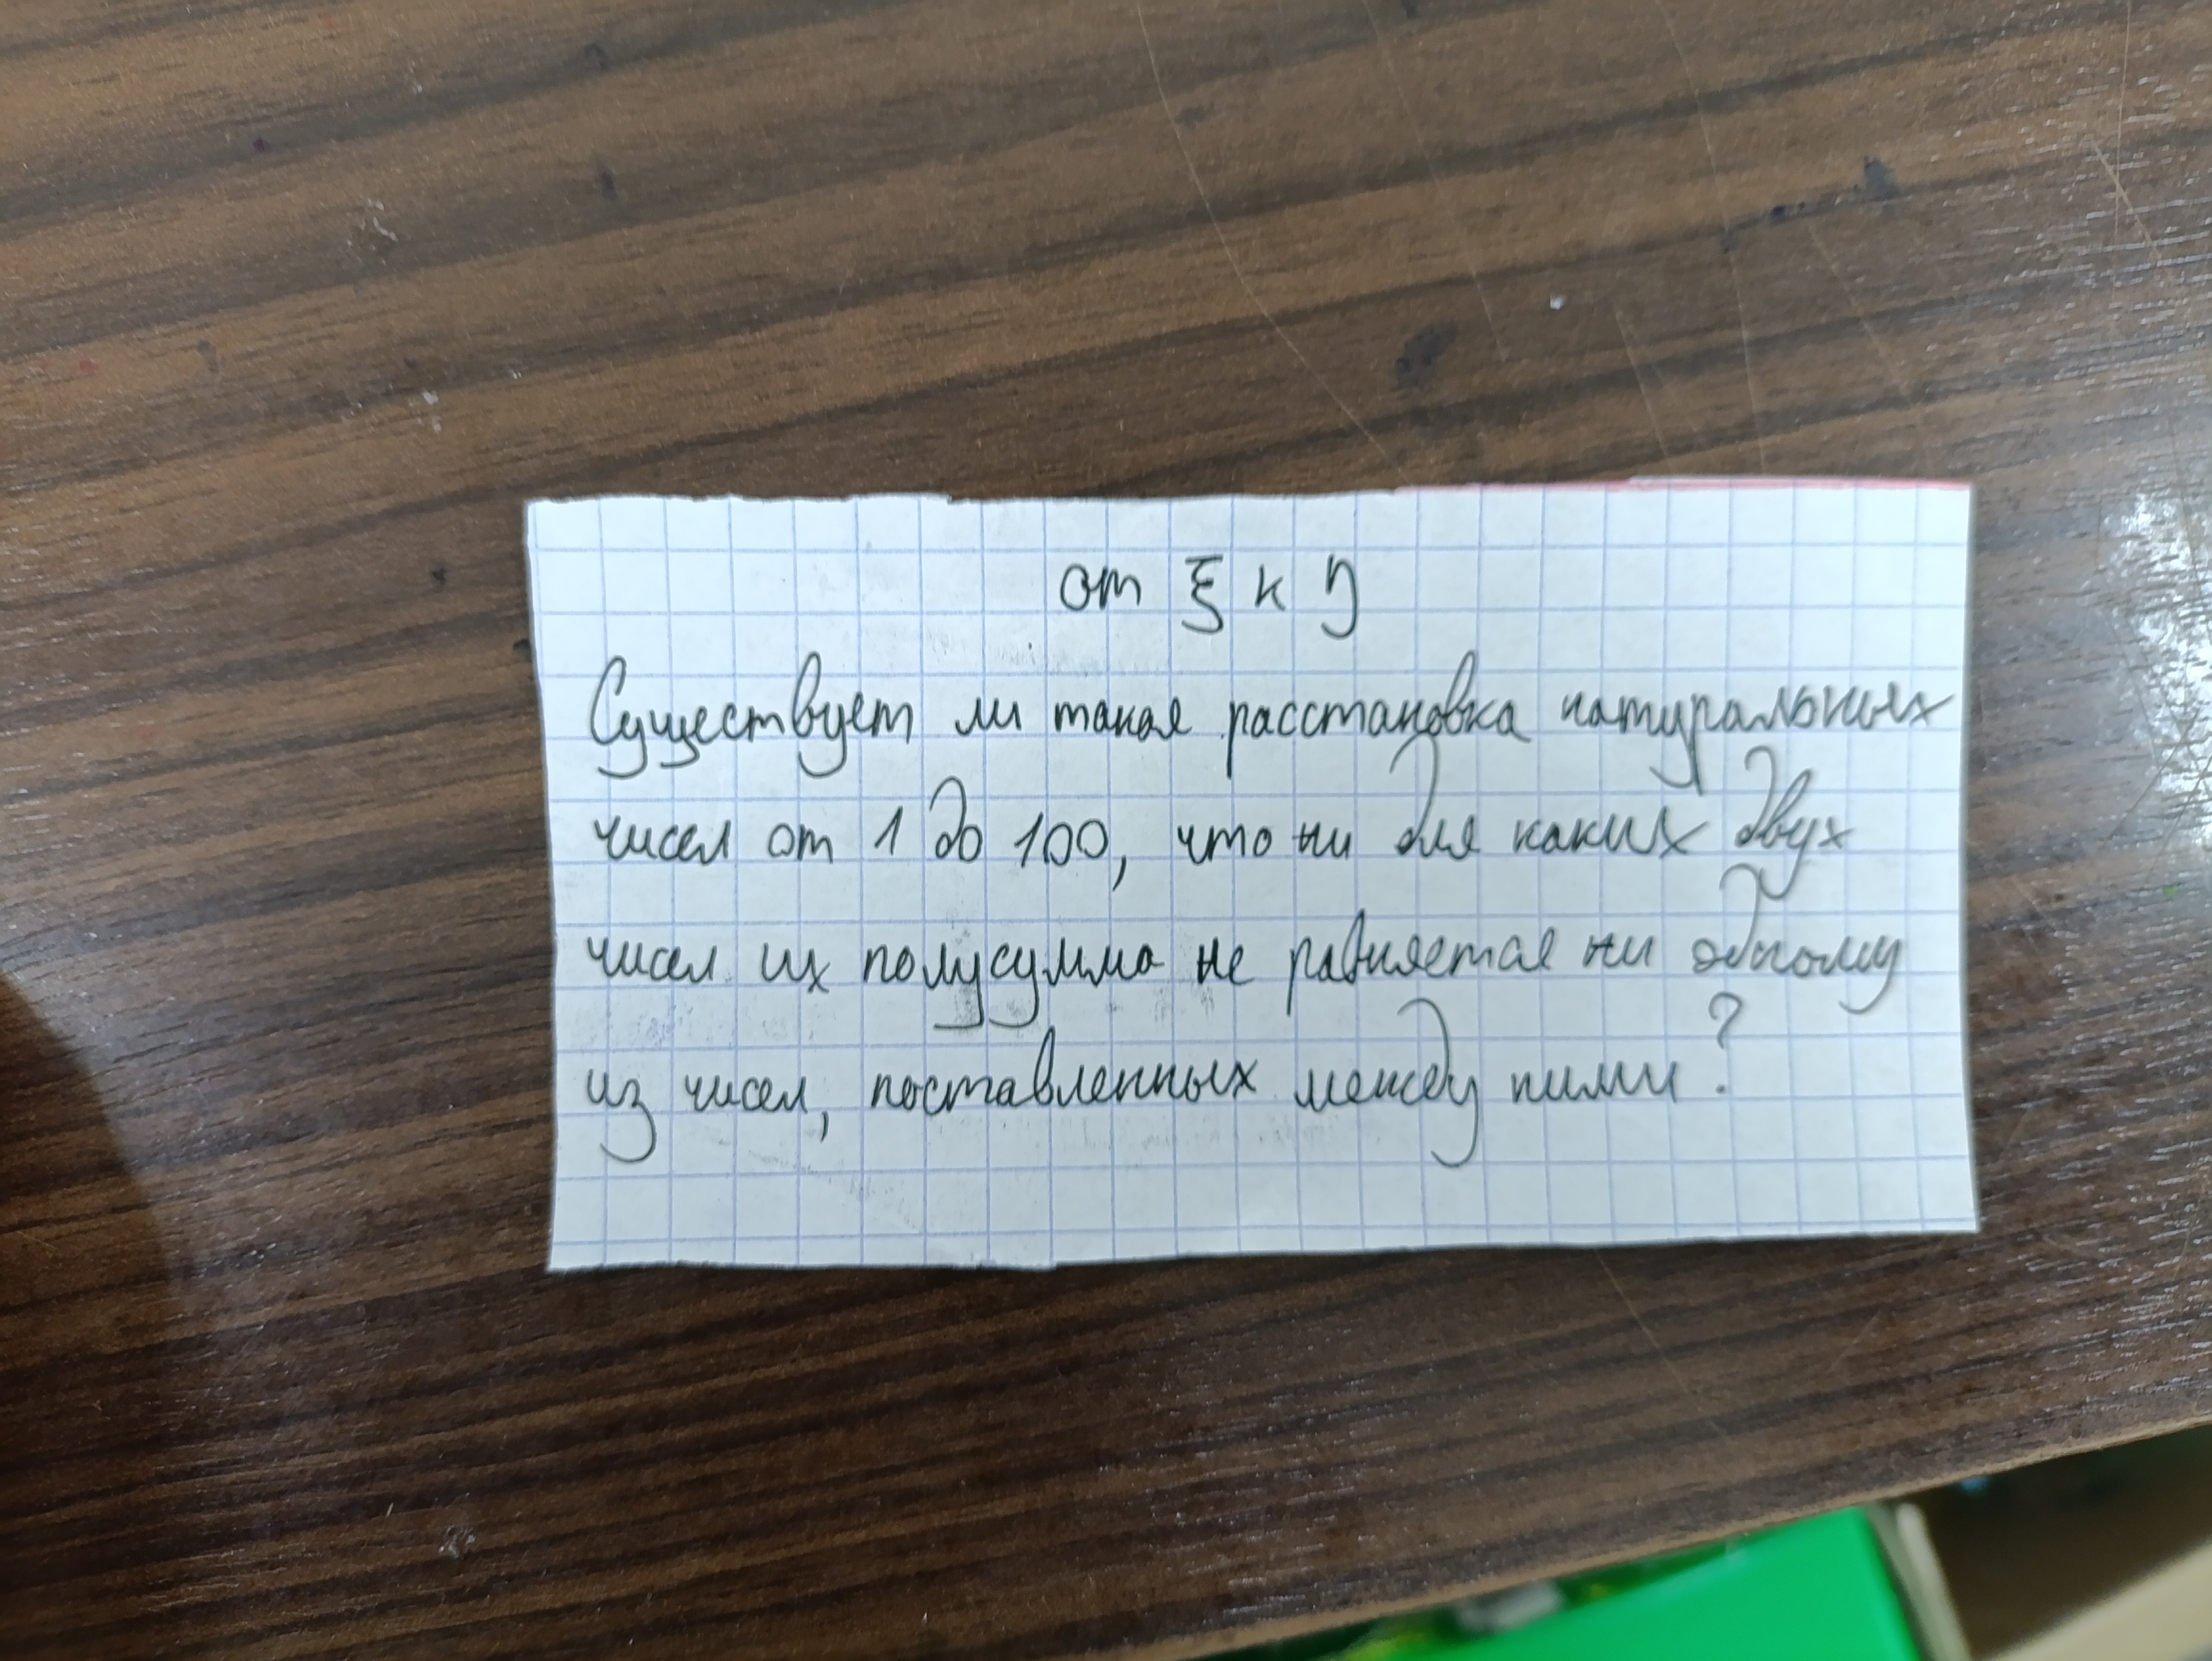 от ξ к η
Существует ли такая расстановка натуральных
чисел от 1 до 100, что ни для каких двух
чисел их полусумма не равняется ни одному
из чисел, поставленных между ними?